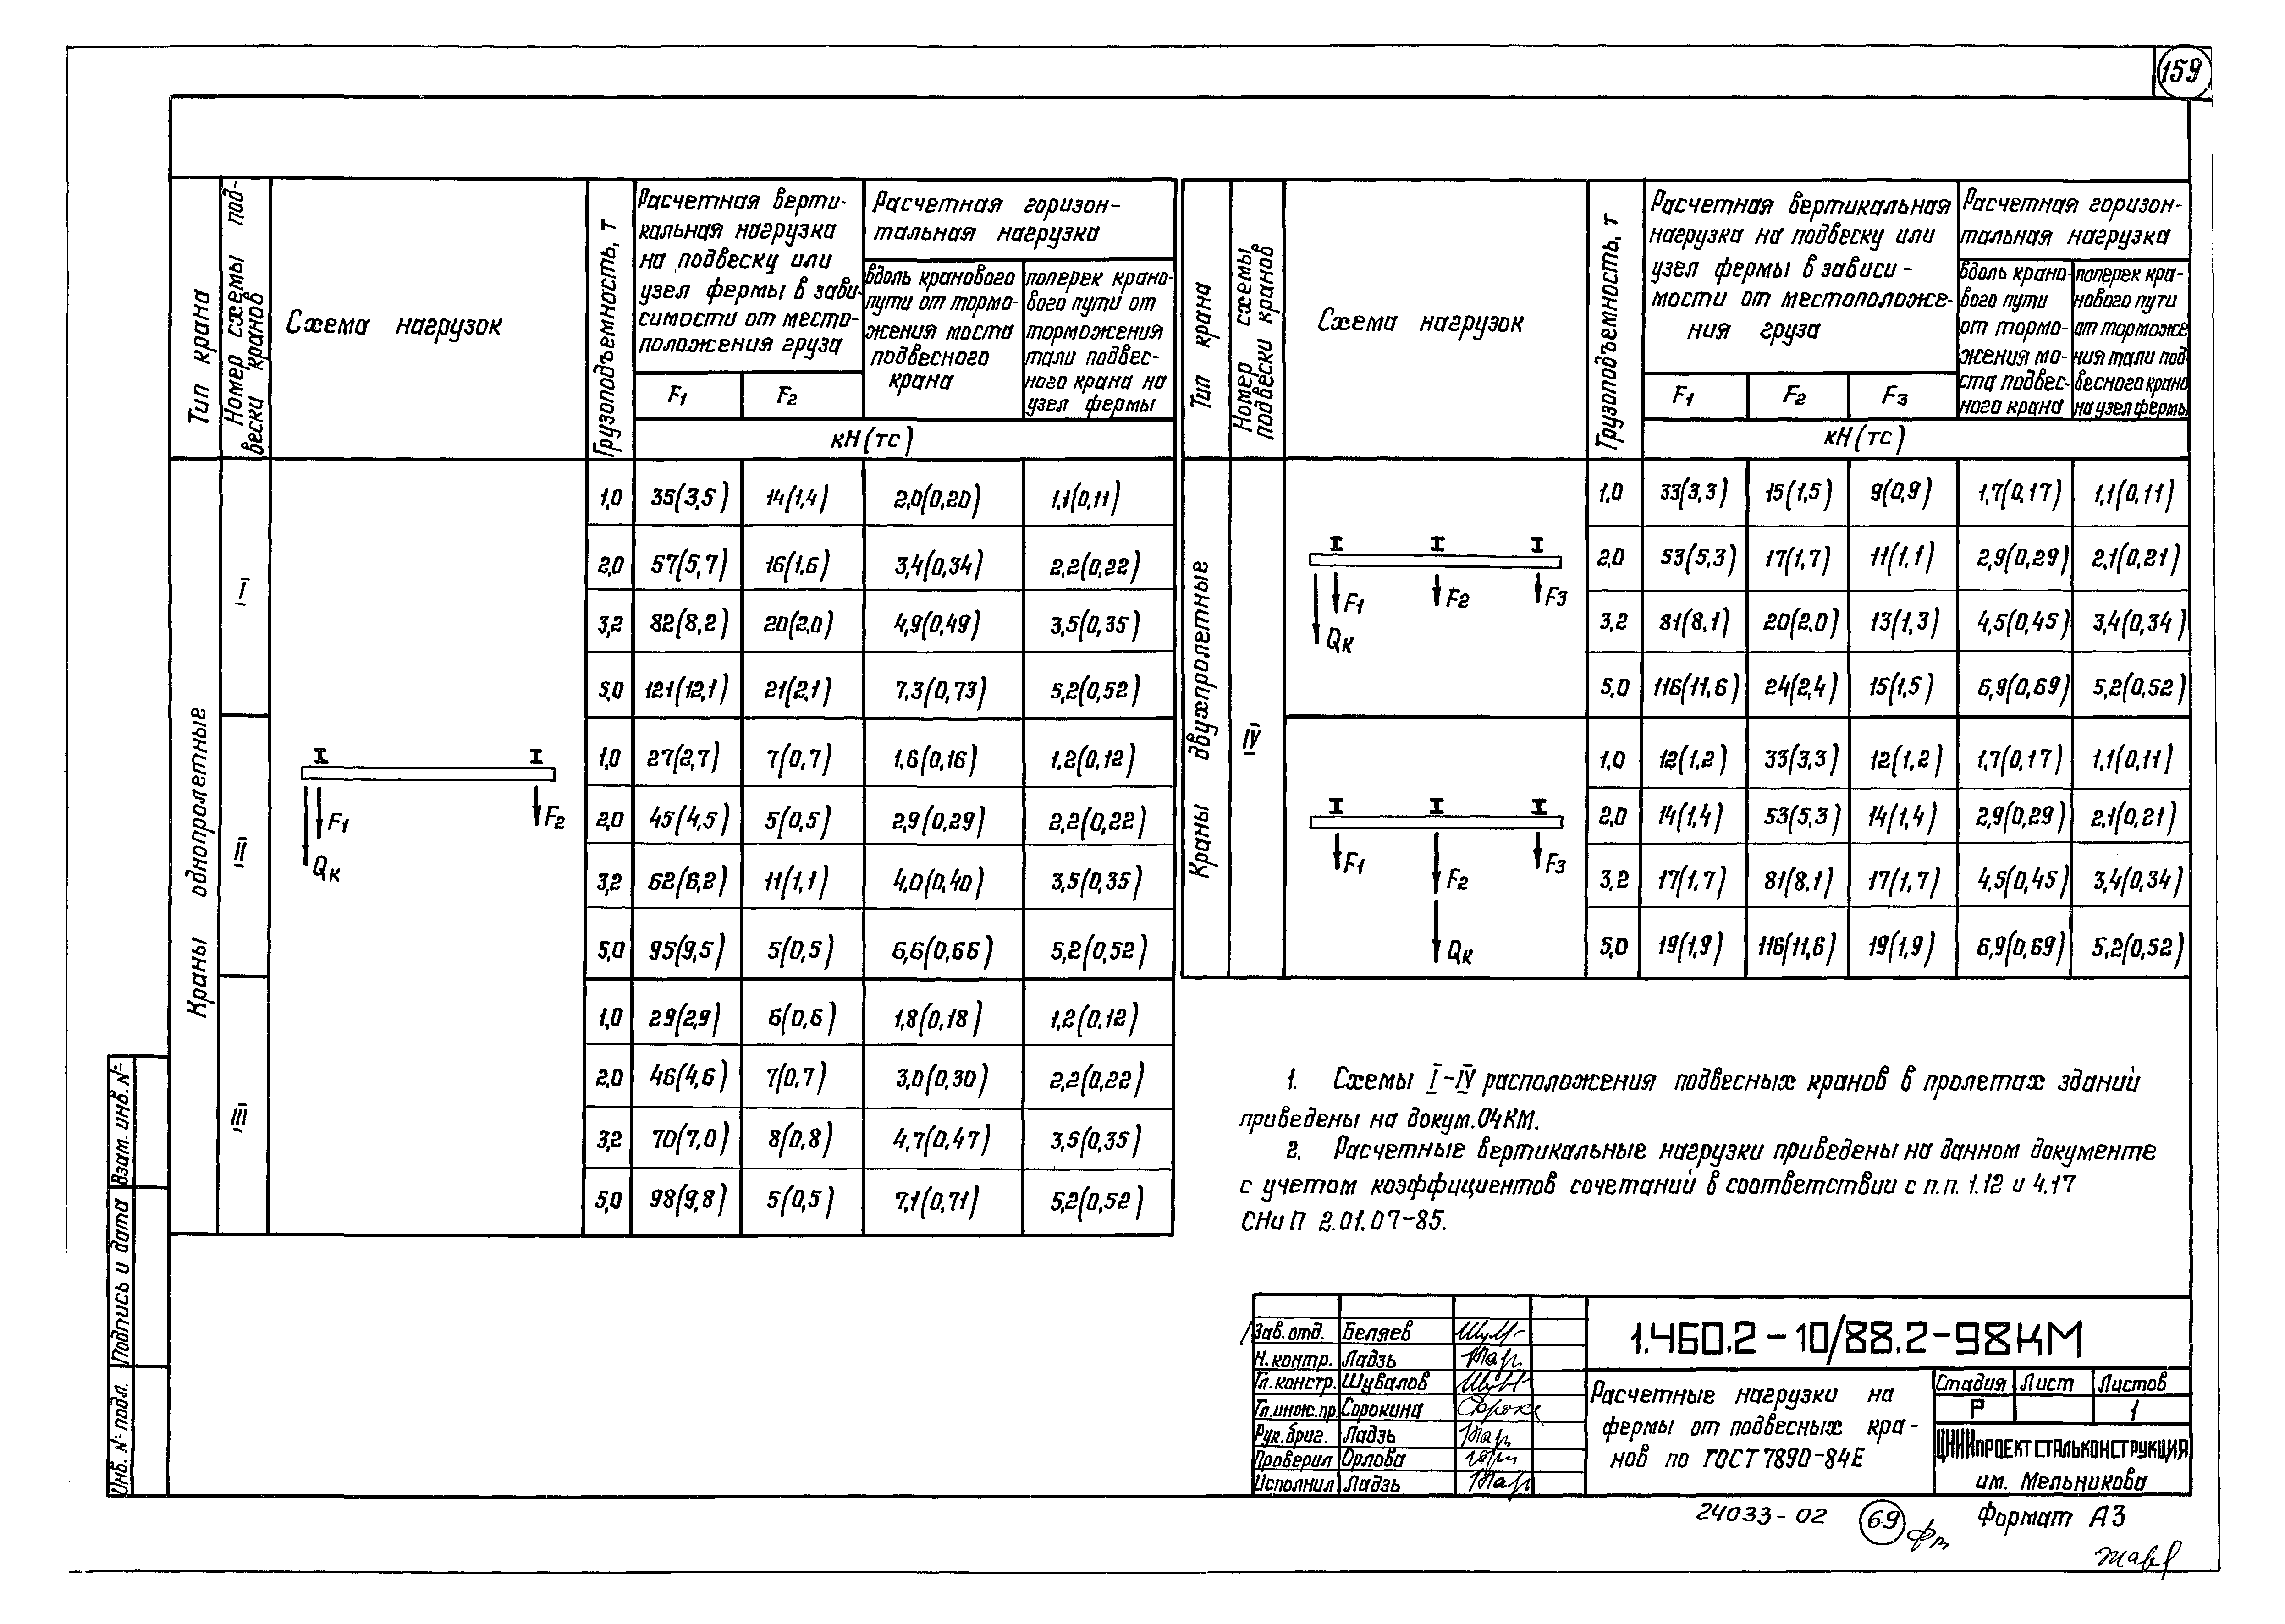 159
Тип крана
Номер схемы под-
вески кранов
Схема нагрузок
Грузоподъемность, т
Расчетная верти-
кальная нагрузка
на подвеску или
узел фермы в зави-
симости от место-
положения груза
F1 F2
Расчетная горизон-
тальная нагрузка
вдоль кранового
пути от тормо-
жения моста
подвесного
крана
поперек крано-
вого пути от
торможения
тали подвес-
ного крана на
узел фермы
кН(тс)
Краны однопролетные
I
1,0 35(3,5) 14(1,4) 2,0(0,20) 1,1(0,11)
2,0 57(5,7) 16(1,6) 3,4(0,34) 2,2(0,22)
3,2 82(8,2) 20(2,0) 4,9(0,49) 3,5(0,35)
5,0 121(12,1) 21(2,1) 7,3(0,73) 5,2(0,52)
II
1,0 27(2,7) 7(0,7) 1,6(0,16) 1,2(0,12)
2,0 45(4,5) 5(0,5) 2,9(0,29) 2,2(0,22)
3,2 62(6,2) 11(1,1) 4,0(0,40) 3,5(0,35)
5,0 95(9,5) 5(0,5) 6,6(0,66) 5,2(0,52)
III
1,0 29(2,9) 6(0,6) 1,8(0,18) 1,2(0,12)
2,0 46(4,6) 7(0,7) 3,0(0,30) 2,2(0,22)
3,2 70(7,0) 8(0,8) 4,7(0,47) 3,5(0,35)
5,0 98(9,8) 5(0,5) 7,1(0,71) 5,2(0,52)
F1 F2
Qк
Тип крана
Номер схемы
подвески кранов
Схема нагрузок
Грузоподъемность, т
Расчетная вертикальная
нагрузка на подвеску или
узел фермы в зависи-
мости от местоположе-
ния груза
F1 F2 F3
Расчетная горизон-
тальная нагрузка
вдоль крано-
вого пути
от тормо-
жения мо-
ста подвес-
ного крана
поперек кра-
нового пути
от торможе
ния тали под-
весного крана
на узел фермы
кН(тс)
Краны двухпролетные
IV
1,0 33(3,3) 15(1,5) 9(0,9) 1,7(0,17) 1,1(0,11)
2,0 53(5,3) 17(1,7) 11(1,1) 2,9(0,29) 2,1(0,21)
3,2 81(8,1) 20(2,0) 13(1,3) 4,5(0,45) 3,4(0,34)
5,0 116(11,6) 24(2,4) 15(1,5) 6,9(0,69) 5,2(0,52)
1,0 12(1,2) 33(3,3) 12(1,2) 1,7(0,17) 1,1(0,11)
2,0 14(1,4) 53(5,3) 14(1,4) 2,9(0,29) 2,1(0,21)
3,2 17(1,7) 81(8,1) 17(1,7) 4,5(0,45) 3,4(0,34)
5,0 19(1,9) 116(11,6) 19(1,9) 6,9(0,69) 5,2(0,52)
F1 F2 F3
Qк
F1 F2 F3
Qк
1. Схемы I-IV расположения подвесных кранов в пролетах зданий
приведены на докум.04КМ.
2. Расчетные вертикальные нагрузки приведены на данном документе
с учетом коэффициентов сочетаний в соответствии с п.п. 1.12 и 4.17
СНиП 2.01.07-85.
Взам. инв. №
Подпись и дата
Инв. № подл.
Зав. отд. Беляев
Н. контр. Ладзь
Гл. констр. Шувалов
Гл.инж.пр. Сорокина
Рук. бриг. Ладзь
Проверил Орлова
Исполнил Ладзь
1.460.2-10/88.2-98КМ
Расчетные нагрузки на
фермы от подвесных кра-
нов по ГОСТ 7890-84Е
Стадия Лист Листов
Р 1
ЦНИИпроектстальконструкция
им. Мельникова
24033-02 69 Формат А3